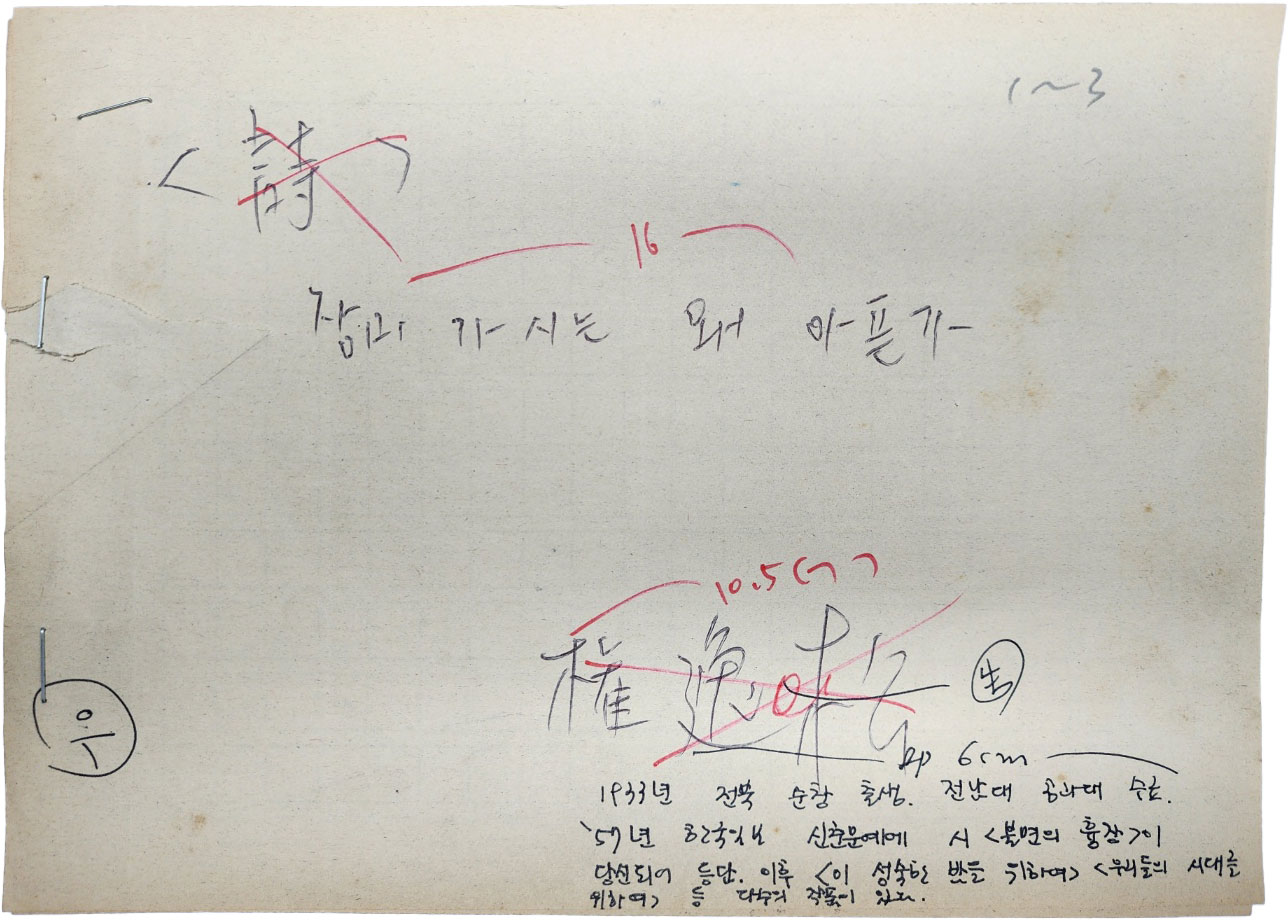 1~3
<詩>
16
장미 가시는 왜 아픈가
10.5(ㄱ)
權逸松
生
우
6cm
1933년 전북 순창 출생. 전남대 공과대 수료.
'57년 한국일보 신춘문예에 시 <불면의 흉장>이
당선되어 등단. 이후 <이 성숙한 밤을 위하여> <우리들의 시대를
위하여> 등 다수의 작품이 있다.